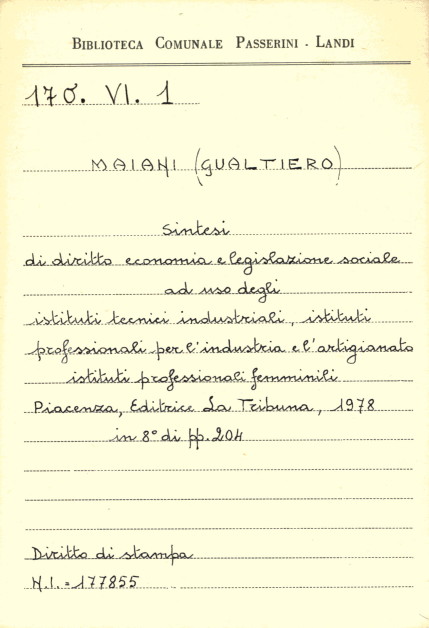 BIBLIOTECA COMUNALE PASSERINI - LANDI
170. VI. 1
MAIANI (GUALTIERO)
Sintesi
di diritto economia e legislazione sociale
ad uso degli
istituti tecnici industriali, istituti
professionali per l'industria e l'artigianato
istituti professionali femminili
Piacenza, Editrice La Tribuna, 1978
in 8° di pp. 204
Diritto di stampa
N.I. = 177855